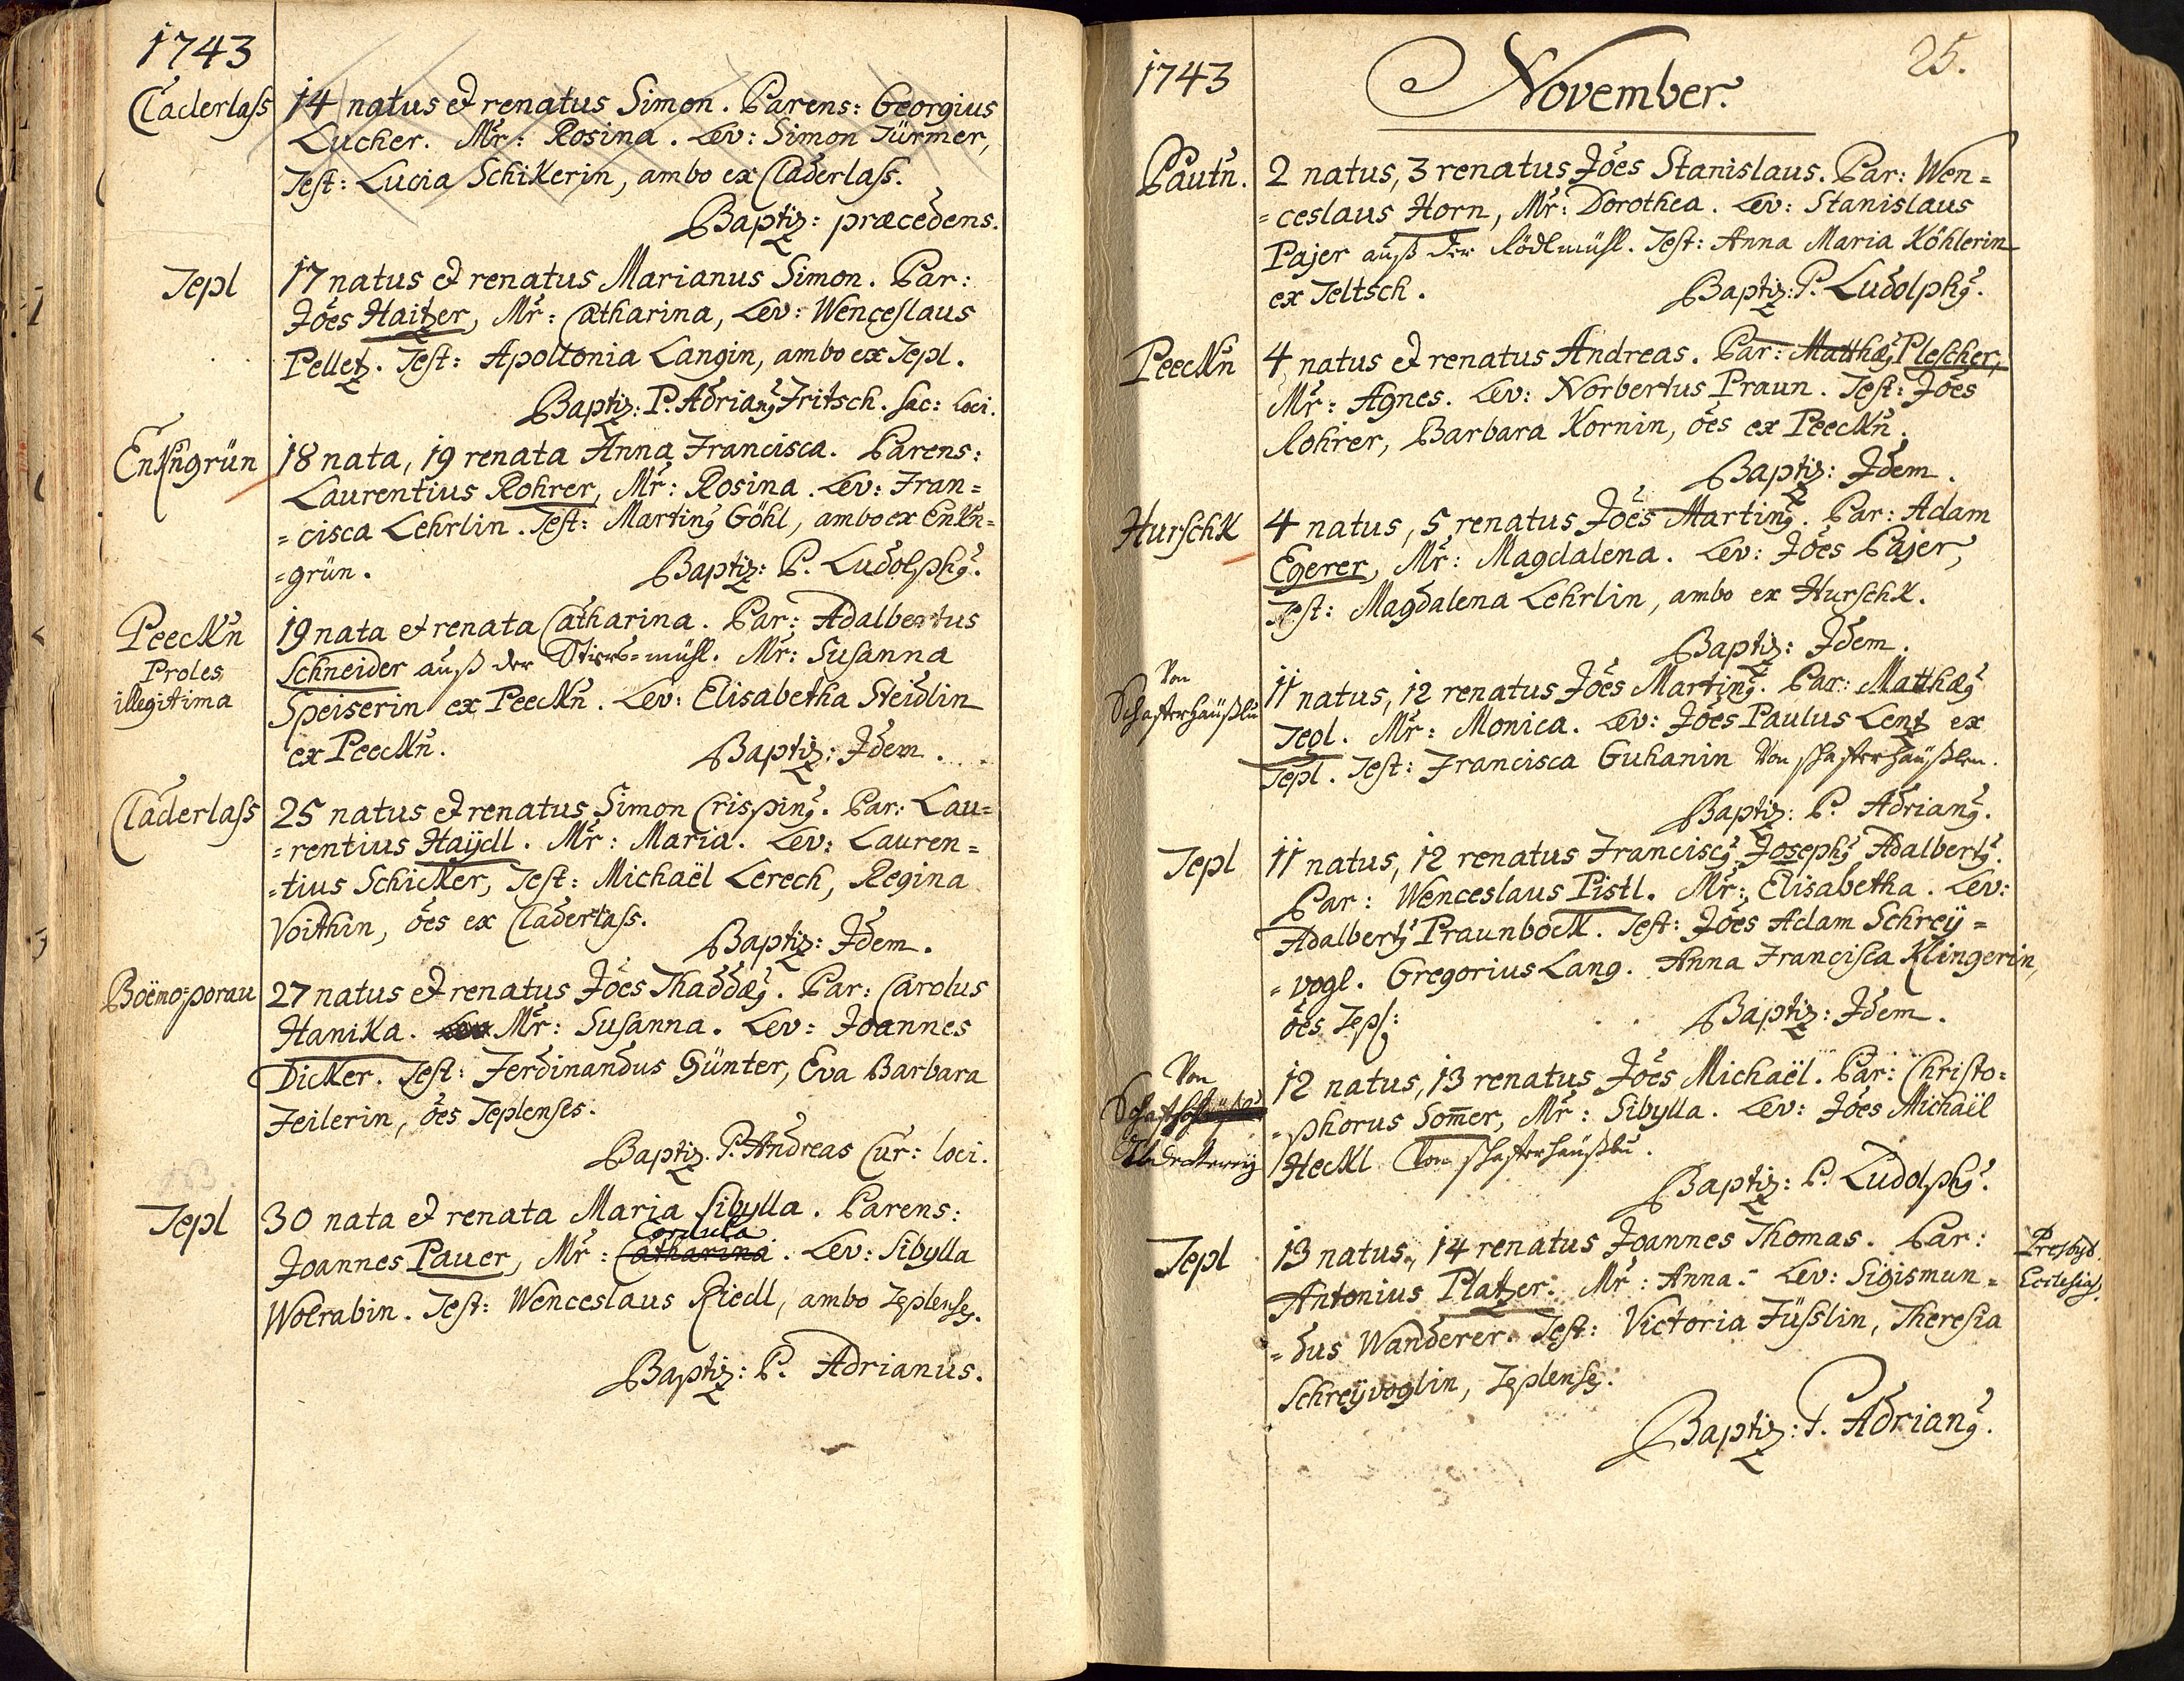 1743
Claderlass
14 natus et renatus Simon. Parens: Georgius
Lucher. Mr: Rosina. Lev: Simon Türmer,
Test: Lucia Schikerin, ambo ex Claderlass.
Baptiz: præcedens.
Tepl
17 natus et renatus Marianus Simon. Par:
Jões Haitzer, Mr: Catharina, Lev: Wenceslaus
Pelletz. Test: Apollonia Langin, ambo ex Tepl.
Baptiz: P. Adrianꝰ Fritsch. sac: loci.
Enkngrün
18 nata, 19 renata Anna Francisca. Parens:
Laurentius Rohrer, Mr: Rosina. Lev: Fran=
=cisca Lehrlin. Test: Martinꝰ Göhl, ambo ex Enkn=
=grün.
Baptiz: P. Ludolphꝰ.
Peeckn
Proles
illegitima
19 nata et renata Catharina. Par: Adalbertus
Schneider auß der mühl. Mr: Susanna
Speiserin ex Peeckn. Lev: Elisabetha Neidlin
ex Peeckn.
Baptiz: Idem.
Claderlass
25 natus et renatus Simon Crispinꝰ. Par: Lau=
=rentius Haÿdl. Mr: Maria. Lev: Lauren=
=tius Schicker, Test: Michaël Lerech, Regina
Voithin, ões ex Claderlass.
Baptiz: Idem.
Boëmo=porau
27 natus et renatus Jões Thaddæꝰ. Par: Carolus
Hanika. Lev Mr: Susanna. Lev: Joannes
Dicker. Test: Ferdinandus Günter, Eva Barbara
Zeilerin, ões Teplenses.
Baptiz. P. Andreas Cur: loci.
Tepl
30 nata et renata Maria Sibylla. Parens:
Cordula
Joannes Pauer, Mr: Catharina. Lev: Sibylla
Wolrabin. Test: Wenceslaus Riedl, ambo Teplenses.
Baptiz: P. Adrianus.
1743
November.
25.
Pautn.
2 natus, 3 renatus Jões Stanislaus. Par: Wen=
=ceslaus Horn, Mr: Dorothea. Lev: Stanislaus
Pajer auß der Rödlmühl. Test: Anna Maria Köhlerin
ex Teltsch.
Baptiz: P. Ludolphꝰ.
Peeckn
4 natus et renatus Andreas. Par: Matthæꝰ Plescher,
Mr: Agnes. Lev: Norbertus Praun. Test: Jões
Rohrer, Barbara Kornin, ões ex Peeckn.
Baptiz: Idem.
Hurschk
4 natus, 5 renatus Jões Martinꝰ. Par: Adam
Egerer, Mr: Magdalena. Lev: Jões Pajer,
Test: Magdalena Lehrlin, ambo ex Hurschk.
Baptiz: Idem.
Von
Schafterhäußln
11 natus, 12 renatus Jões Martinꝰ. Par: Matthæꝰ
Tegl. Mr: Monica. Lev: Jões Paulus Lentz ex
Tepl. Test: Francisca Guhanin Von schafterhäußlen.
Baptiz: P. Adrianꝰ.
Tepl
11 natus, 12 renatus Franciscꝰ Josephꝰ Adalbertꝰ.
Par: Wenceslaus Pistl. Mr: Elisabetha. Lev:
Adalbertꝰ Praunbock. Test: Jões Adam Schreÿ=
=vogl. Gregorius Lang. Anna Francisca Klingerin,
ões Tepl:
Baptiz: Idem.
Von
12 natus, 13 renatus Jões Michaël. Par: Christo=
=phorus Som̄er, Mr: Sibylla. Lev: Jões Michaël
Heckl Von schafterhäußln.
Baptiz: P. Ludolphꝰ.
Tepl
13 natus, 14 renatus Joannes Thomas. Par:
Antonius Platzer. Mr: Anna. Lev: Sigismun=
=dus Wanderer. Test: Victoria Füsslin, Theresia
Schreÿvoglin, Teplenses.
Baptiz: P. Adrianꝰ.
Presbyt.